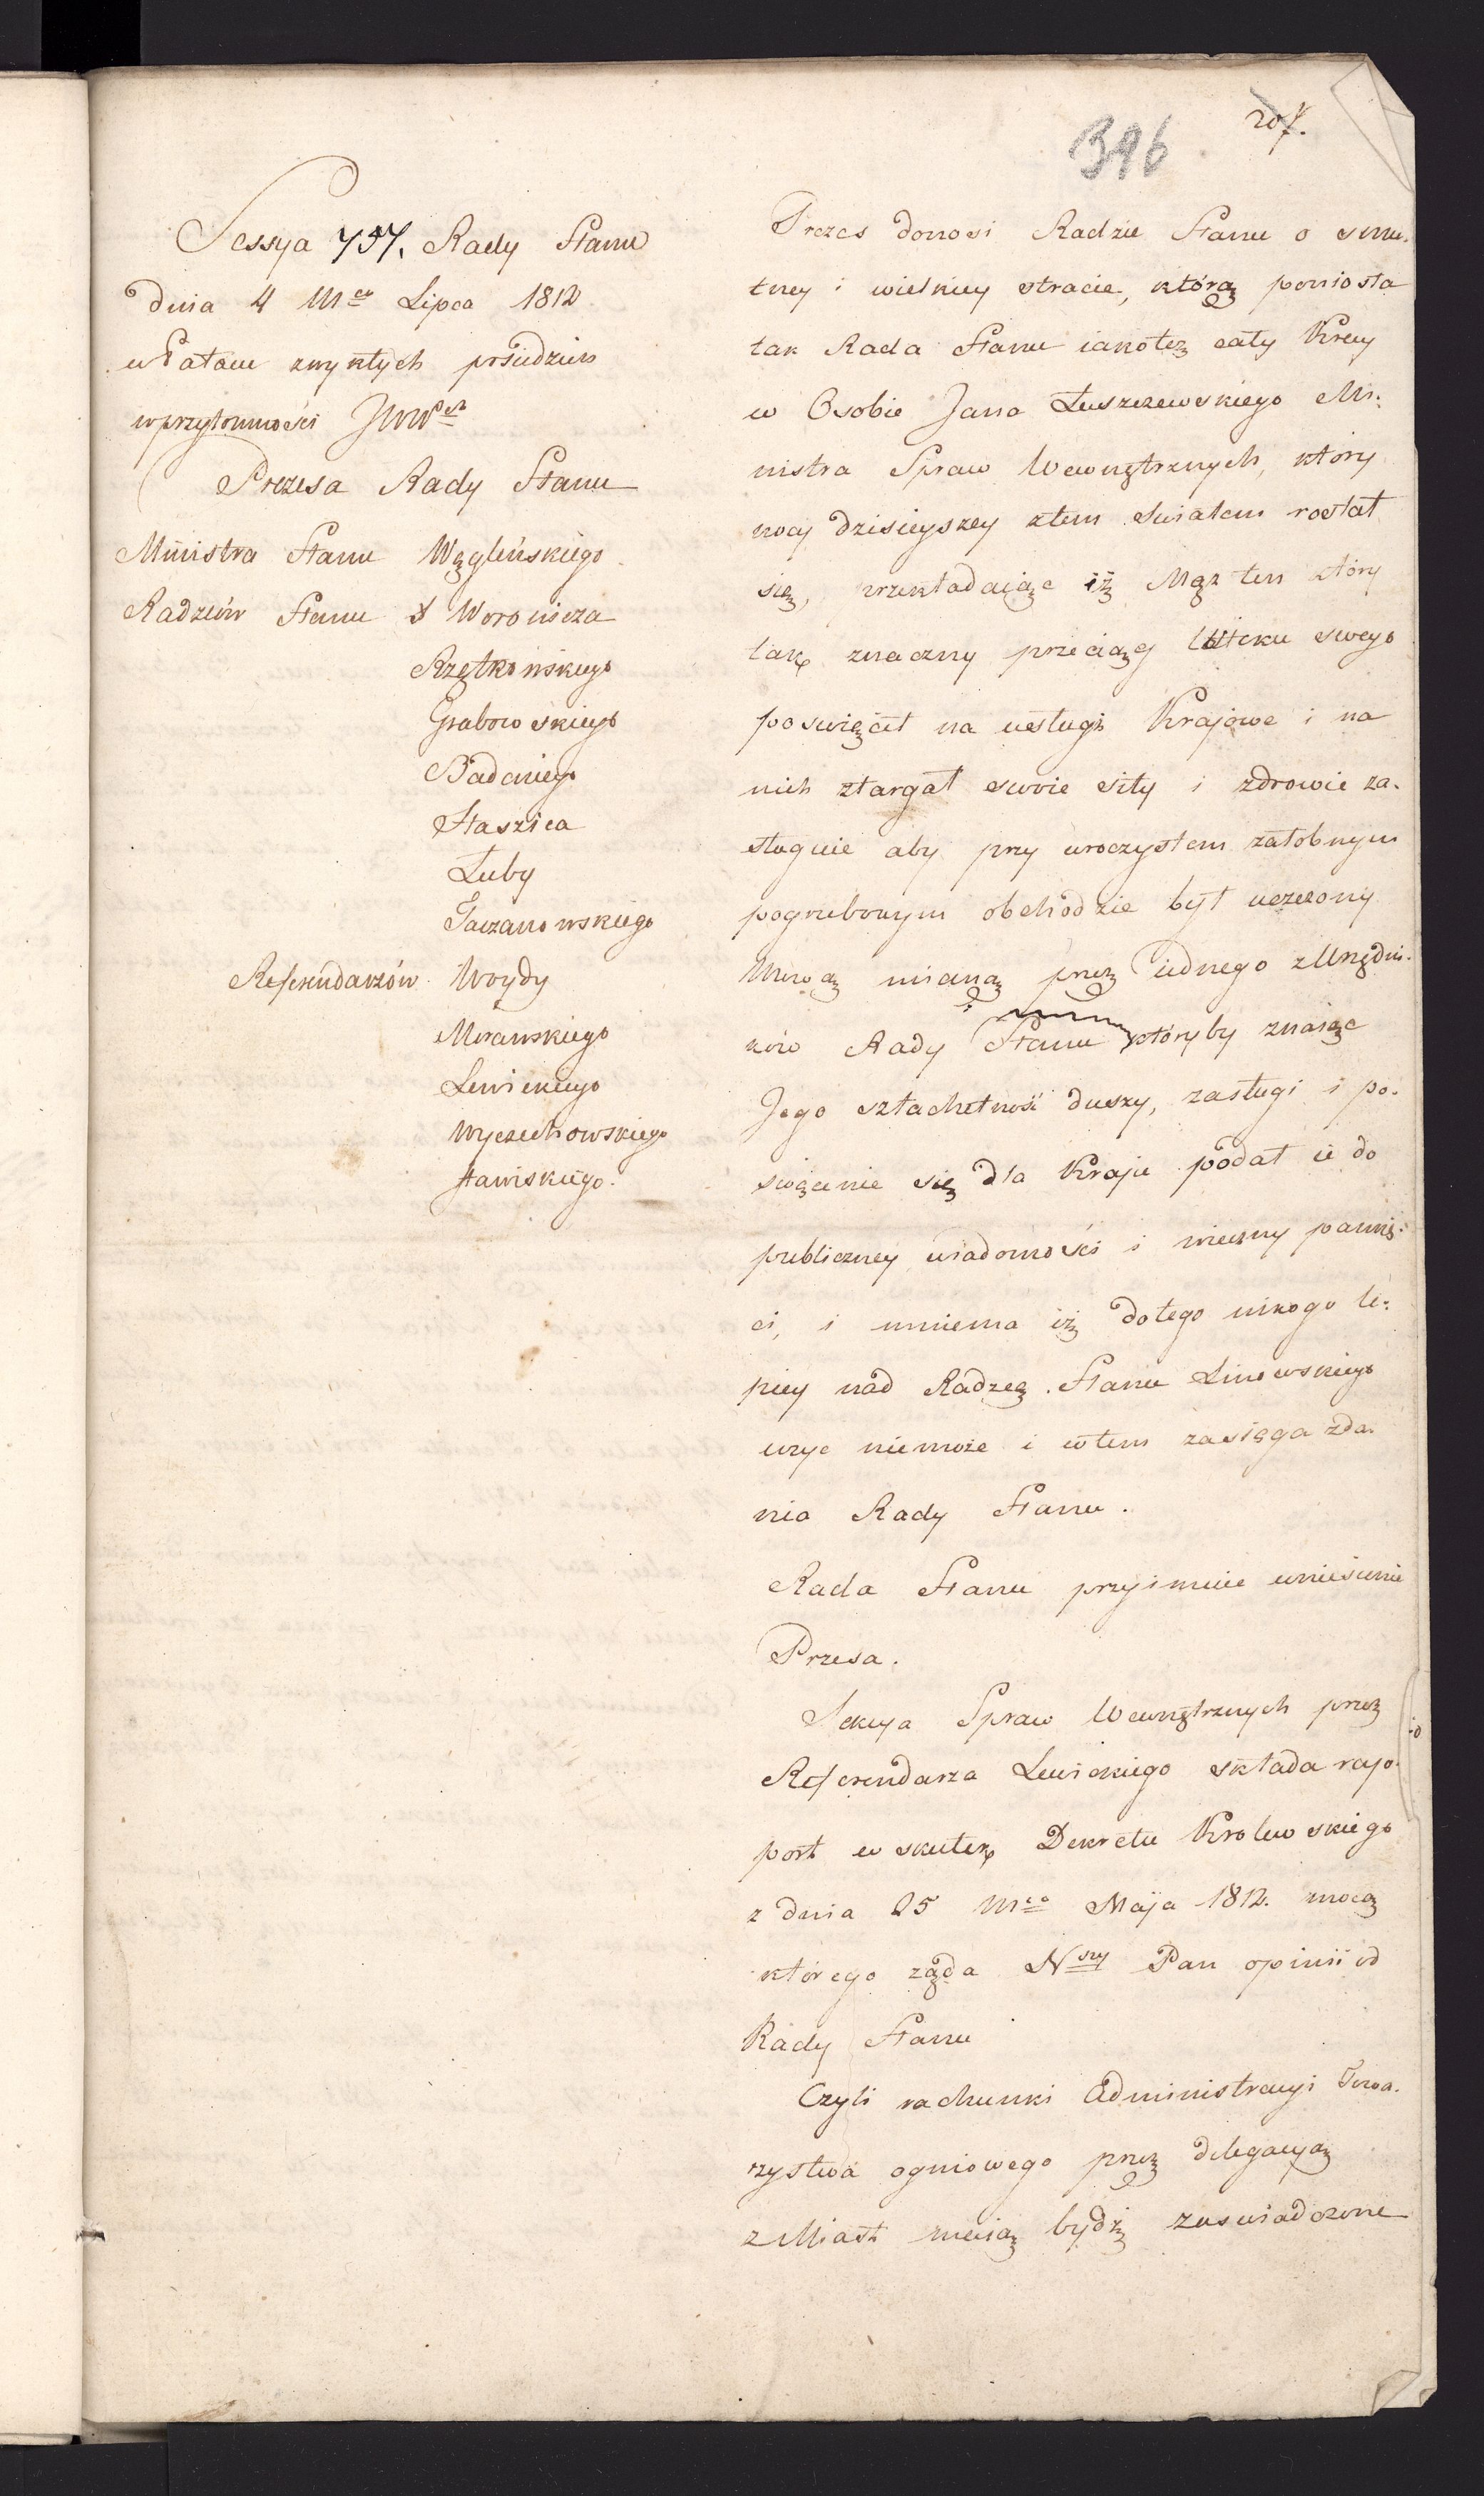 207.
396
Sessya 757. Rady Stanu
dnia 4 Mca Lipca 1812
w Pałacu zwykłych posiedzień
w przytomności JWW
Prezesa Rady Stanu
Ministra Stanu Węgleńskiego
Radzców Stanu Woronicza
Rzętkowskiego
Grabowskiego
Badeniego
Staszica
Łuby
Taczanowskiego
Referendarzów Woydy
Morawskiego
Lewickiego
Wyczechowskiego
Stawiskiego.
Prezes donosi Radzie Stanu o smu-
tney i wielkiey stracie, którą poniosła
tak Rada Stanu iakoteż cały Kray
w Osobie Jana Łuszczewskiego Mi-
nistra Spraw Wewnętrznych, który
nocy dzisieyszey z tem światem rostał
się, przekładaiąc iż Mąż ten który
tak znaczny przeciąg Wieku swego
poświęcił na usługi Krajowe i na
nich ztargał swoie siły i zdrowie za-
sługuie aby przy uroczystem żałobnym
pogrzebowym obchodzie był uczczony
Mową mianą przez iednego z Urzędni-
ków Rady Stanu któryby znaiąc
Jego szlachetność duszy, zasługi i po-
święcenie się dla Kraju podał ie do
publiczney wiadomości i wieczney pamię-
ci, i mniema iż do tego nikogo le-
piey nad Radzcę Stanu Linowskiego
użyć niemoże i wtem zasięga zda-
nia Rady Stanu.
Rada Stanu przyimuie wniesienie
Prezesa.
Sekcya Spraw Wewnętrznych przez
Referendarza Lewickiego składa rap-
port w skutek Dekretu Krolewskiego
z dnia 25 Mca Maja 1812. mocą
którego żąda Nszy Pan opinii od
Rady Stanu
Czyli rachunki Administracyi Towa-
rzystwa ogniowego przez delegacyą
z Miast maią bydź zaswiadczone